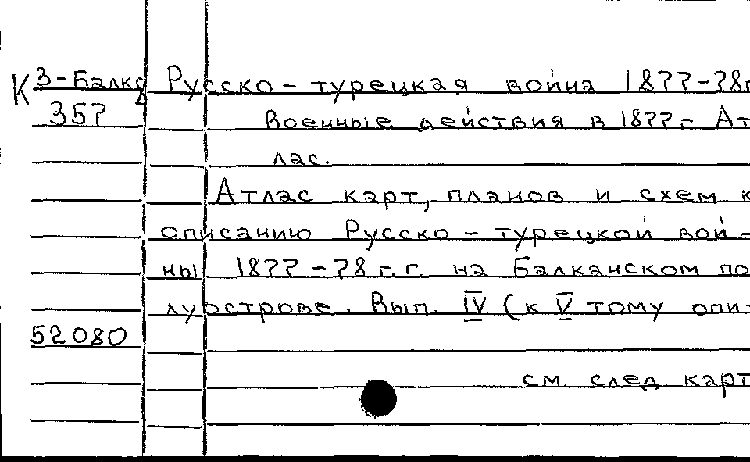 К З-Балк Русско-турецкая война 1877-78г
357 Военные действия в 1877 г. Ат
лас.
Атлас карт, планов и схем к
описанию Русско-турецкой вой-
ны 1877-78 г.г. на Балканском по
луострове. Вып. IV (к V тому опи-
52080
см. след. карт